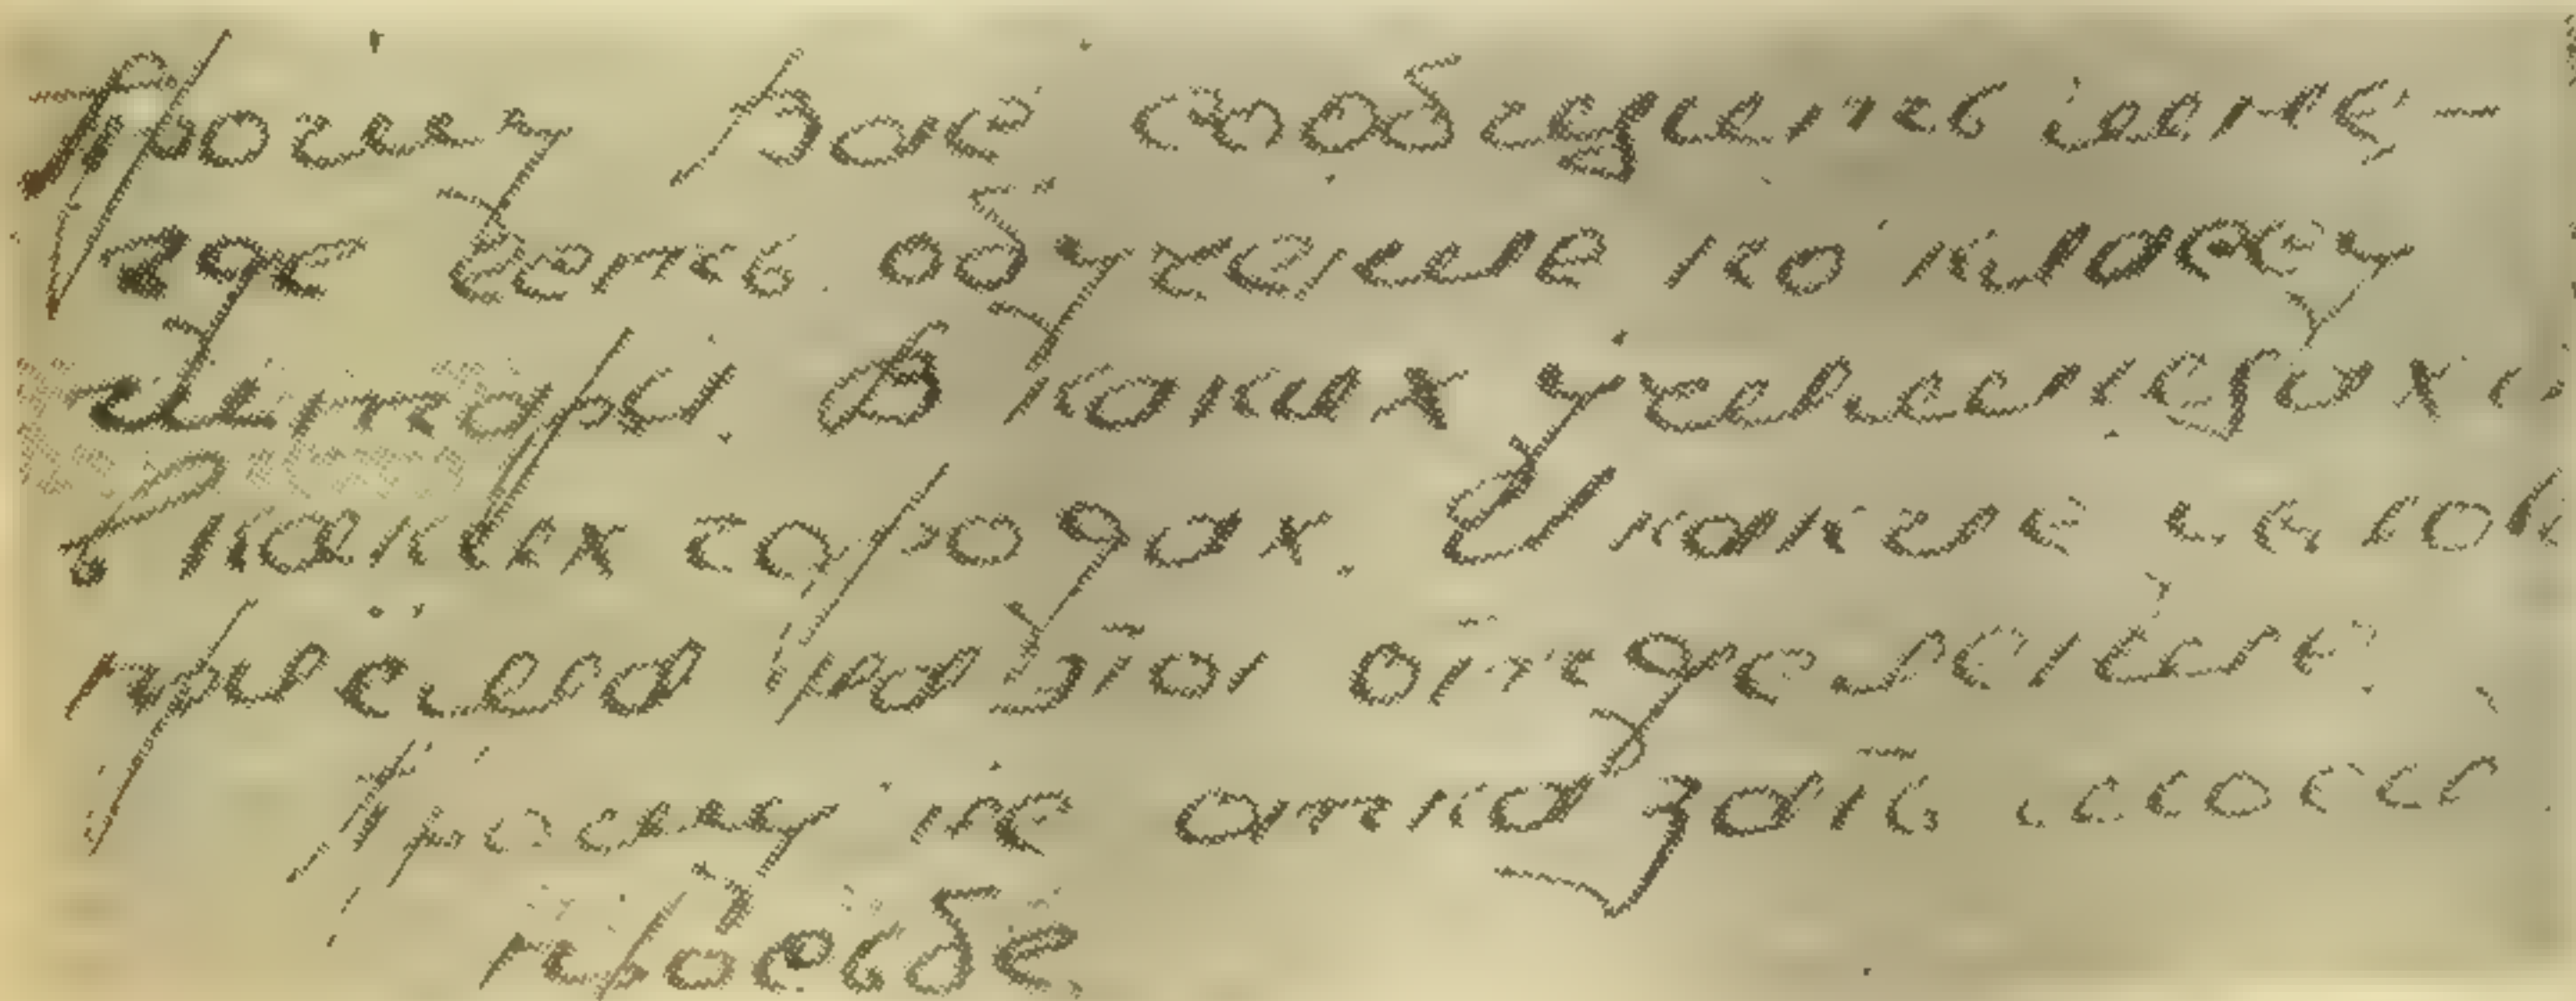 Прошу Вас сообщить мне,-
где есть обучение по класу
гитары. В каких училищах и
в каких городах. И какие
приёма на это отделение.
Прошу не отказать моей
просьбе.